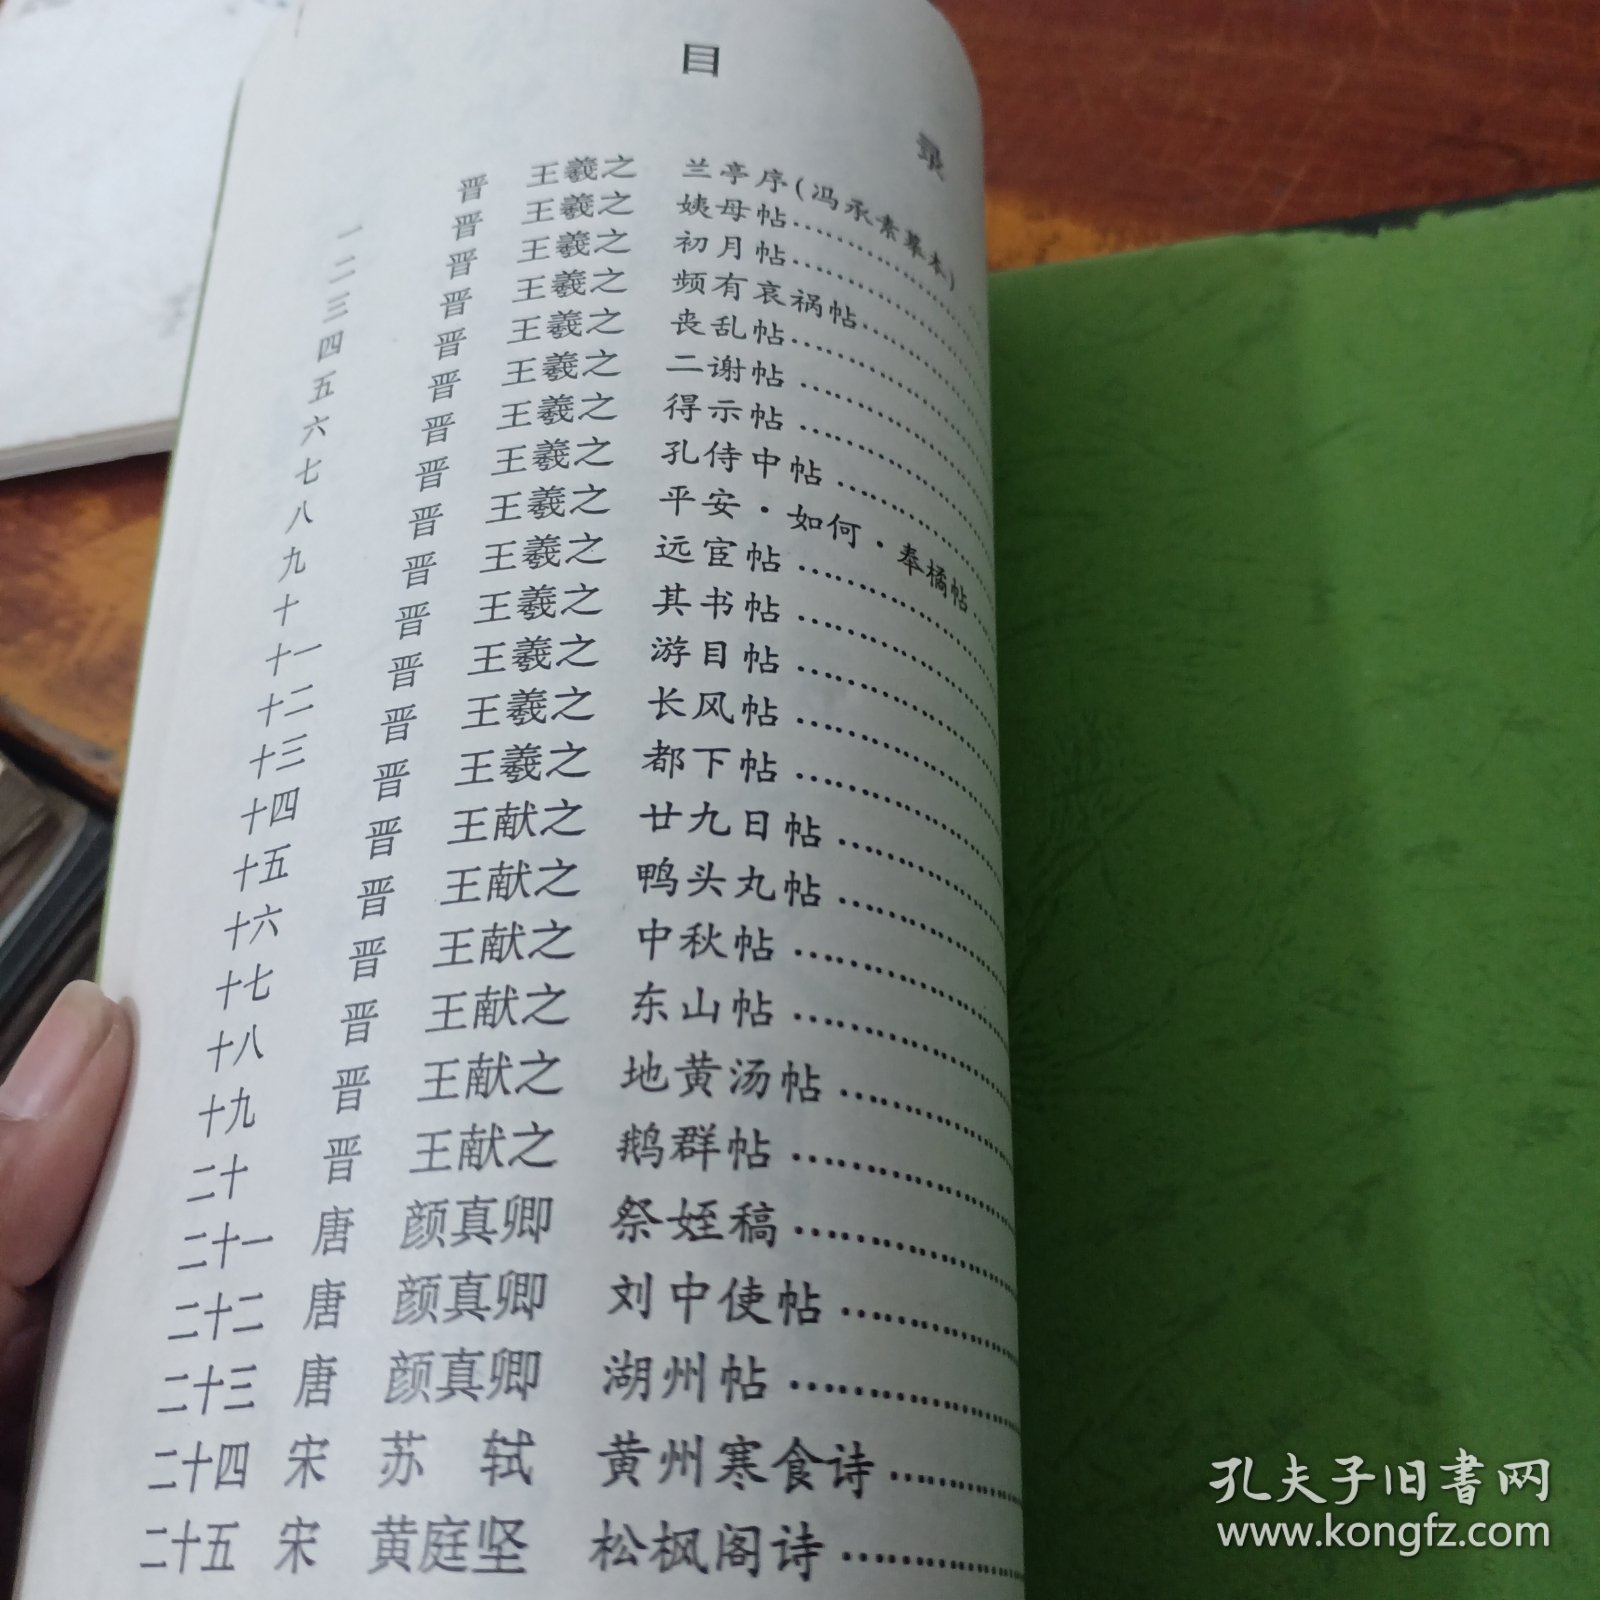 目录
一 晋 王羲之 兰亭序(冯承素摹本)
二 晋 王羲之 姨母帖
三 晋 王羲之 初月帖
四 晋 王羲之 频有哀祸帖
五 晋 王羲之 丧乱帖
六 晋 王羲之 二谢帖
七 晋 王羲之 得示帖
八 晋 王羲之 孔侍中帖
九 晋 王羲之 平安·如何·奉橘帖
十 晋 王羲之 远宦帖
十一 晋 王羲之 其书帖
十二 晋 王羲之 游目帖
十三 晋 王羲之 长风帖
十四 晋 王羲之 都下帖
十五 晋 王献之 廿九日帖
十六 晋 王献之 鸭头丸帖
十七 晋 王献之 中秋帖
十八 晋 王献之 东山帖
十九 晋 王献之 地黄汤帖
二十 晋 王献之 鹅群帖
二十一 唐 颜真卿 祭姪稿
二十二 唐 颜真卿 刘中使帖
二十三 唐 颜真卿 湖州帖
二十四 宋 苏轼 黄州寒食诗
二十五 宋 黄庭坚 松枫阁诗
孔夫子旧書网
www.kongfz.com